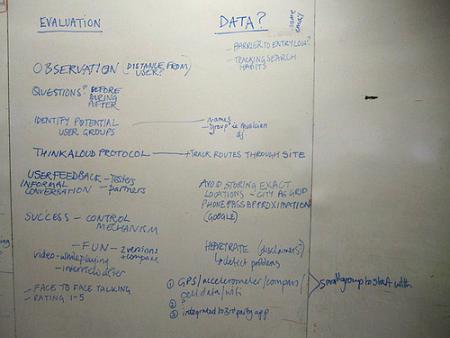 EVALUATION
OBSERVATION (DISTANCE FROM USER?)
QUESTIONS? BEFORE
DURING
AFTER
IDENTIFY POTENTIAL
USER GROUPS
THINKALOUD PROTOCOL
USER FEEDBACK - Testers
INFORMAL - partners
CONVERSATION
SUCCESS - CONTROL
MECHANISM
- FUN - 2 versions
+ compare
video - while playing
- interview after
- FACE TO FACE TALKING
- RATING 1-5
DATA?
- BARRIER TO ENTRY LOW?
- TRACKING SEARCH
HABITS
- names
- "group" ie musician
dj
+ TRACK ROUTES THROUGH SITE
AVOID STORING EXACT
LOCATIONS - CITY AS GRID
PHONE PASS APPROXIMATION
(GOOGLE)
HEARTRATE (disclaimers)
detect problems
① GPS/accelerometer/compass/
cell data/wifi
②
③ integrated to 3rd party app
small group to start with